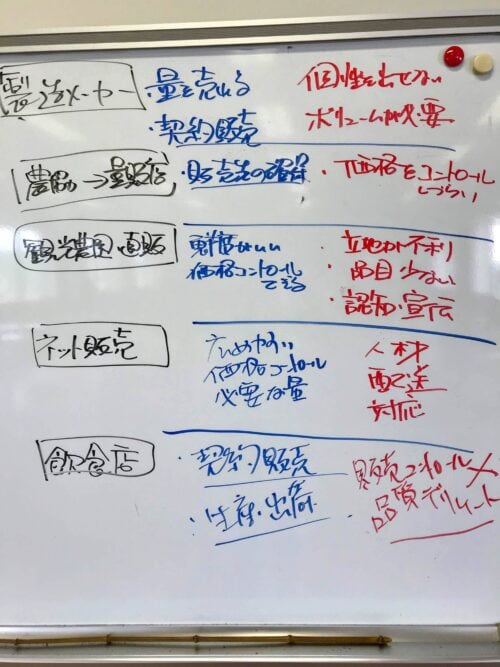 製造メーカー
量を売れる
・契約販売
個性を出せない
ボリュームが必要
農協→量販店
・販売先の確保
・価格をコントロール
しづらい
観光農園・直販
鮮度がいい
価格コントロール
できる
・立地が不利
・品目少ない
・認知・宣伝
ネット販売
広めやすい
価格コントロール
必要な量
人材
配送
対応
飲食店
・契約販売
・生産・出荷
販売コントロール×
・品質デリケート